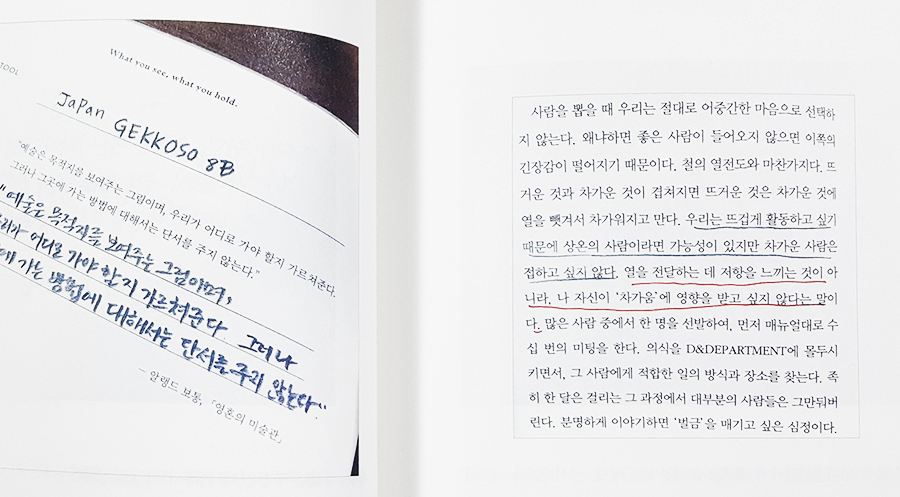 TOOL
What you see, what you hold.
Japan GEKKOSO 8B
"예술은 목적지를 보여주는 그림이며, 우리가 어디로 가야 할지 가르쳐준다.
그러나 그곳에 가는 방법에 대해서는 단서를 주지 않는다."
"예술은 목적지를 보여주는 그림이며,
리가 어디로 가야 할지 가르쳐준다. 그러나
에 가는 방법에 대해서는 단서를 주지 않는다".
— 알랭드 보통, 「영혼의 미술관」
사람을 뽑을 때 우리는 절대로 어중간한 마음으로 선택하
지 않는다. 왜냐하면 좋은 사람이 들어오지 않으면 이쪽의
긴장감이 떨어지기 때문이다. 철의 열전도와 마찬가지다. 뜨
거운 것과 차가운 것이 겹쳐지면 뜨거운 것은 차가운 것에
열을 뺏겨서 차가워지고 만다. 우리는 뜨겁게 활동하고 싶기
때문에 상온의 사람이라면 가능성이 있지만 차가운 사람은
접하고 싶지 않다. 열을 전달하는 데 저항을 느끼는 것이 아
니라, 나 자신이 '차가움'에 영향을 받고 싶지 않다는 말이
다. 많은 사람 중에서 한 명을 선발하여, 먼저 매뉴얼대로 수
십 번의 미팅을 한다. 의식을 D&DEPARTMENT에 몰두시
키면서, 그 사람에게 적합한 일의 방식과 장소를 찾는다. 족
히 한 달은 걸리는 그 과정에서 대부분의 사람들은 그만둬버
린다. 분명하게 이야기하면 '벌금'을 매기고 싶은 심정이다.